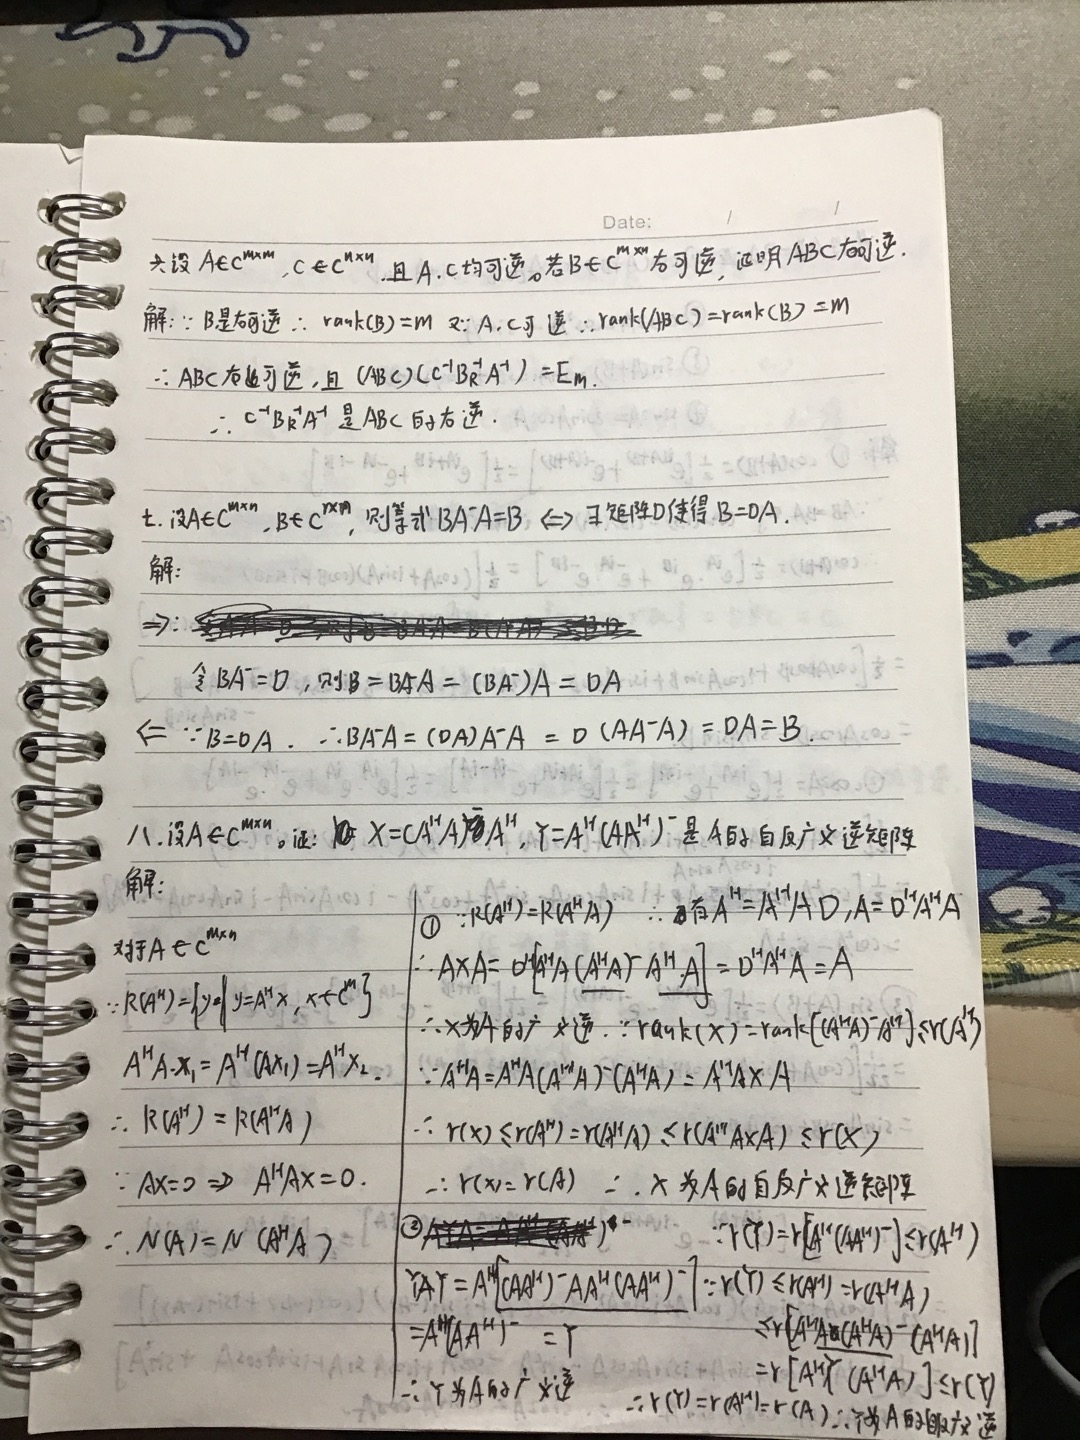 Date: / /
六设 A∈C^{m×m}, C∈C^{n×n}, 且 A.C均可逆。若B∈C^{m×n}右可逆, 证明ABC右可逆.
解: ∵ B是右可逆 ∴ rank(B)=m 又∵ A.C可逆 ∴ rank(ABC)=rank(B)=m
∴ ABC右可逆, 且 (ABC)(C⁻¹B_R⁻¹A⁻¹)=Em.
∴ C⁻¹B_R⁻¹A⁻¹ 是ABC的右逆.
七.设A∈C^{m×n}, B∈C^{r×n}, 则等式 BA⁻A=B ⟺ ∃矩阵D使得 B=DA.
解:
⇒:
令 BA⁻=D, 则B=BA⁻A=(BA⁻)A=DA
⇐ ∵B=DA. ∴BA⁻A=(DA)A⁻A=D(AA⁻A)=DA=B.
八.设A∈C^{m×n}。证: X=(AᴴA)⁻Aᴴ, Y=Aᴴ(AAᴴ)⁻是A的自反广义逆矩阵
解:
对于A∈C^{m×n}
∵R(Aᴴ)={y| y=Aᴴx, x∈Cᵐ}
AᴴA·x₁=Aᴴ(Ax₁)=Aᴴx₂.
∴ R(Aᴴ)=R(AᴴA)
∵ AX=0 ⇒ AᴴAX=0.
∴ N(A)=N(AᴴA)
① ∵R(Aᴴ)=R(AᴴA) ∴有Aᴴ=AᴴAD, A=DᴴAᴴA
∴ AXA=Dᴴ[AᴴA(AᴴA)⁻AᴴA]=DᴴAᴴA=A
∴X为A的广义逆. ∵rank(X)=rank[(AᴴA)⁻Aᴴ]≤r(Aᴴ)
∵AᴴA=AᴴA(AᴴA)⁻(AᴴA)=AᴴAXA
∴ r(X)≤r(Aᴴ)=r(AᴴA)≤r(AᴴAXA)≤r(X)
∴ r(X)=r(A) ∴ X为A的自反广义逆矩阵
②
YAY=Aᴴ[(AAᴴ)⁻AAᴴ(AAᴴ)⁻]
=Aᴴ(AAᴴ)⁻=Y
∴Y为A的广义逆
∵r(Y)=r[Aᴴ(AAᴴ)⁻]≤r(Aᴴ)
∵r(Y)≤r(Aᴴ)=r(AᴴA)
≤r[AᴴA(AᴴA)⁻(AᴴA)]
=r[AᴴY(AᴴA)]≤r(Y)
∴r(Y)=r(Aᴴ)=r(A) ∴Y为A的自反广义逆